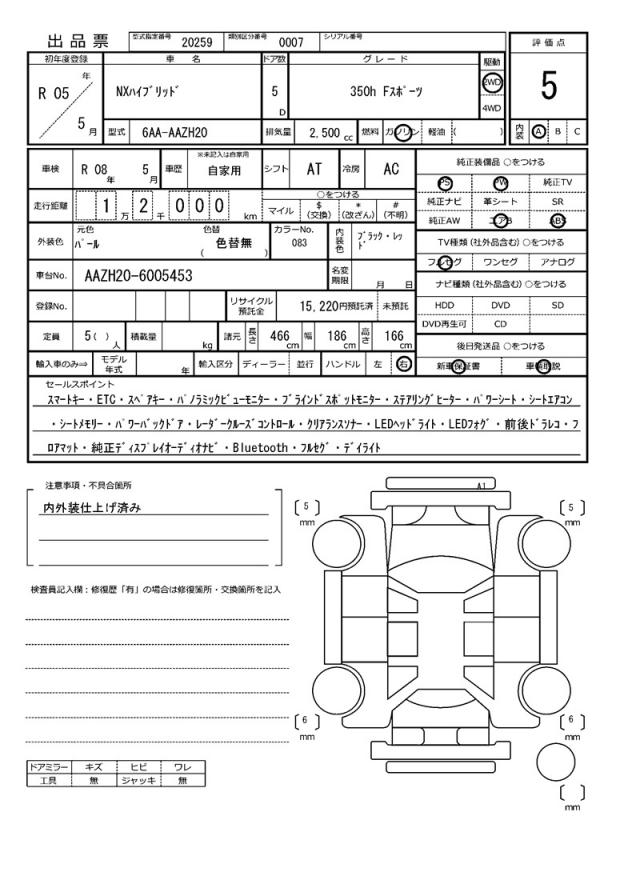 出品票 型式指定番号 20259 類別区分番号 0007 シリアル番号
評価点
初年度登録 車名 ドア数 グレード 駆動
R 05 年 NXハイブリッド 5 D 350h Fスポーツ 2WD 5
4WD
5 月 型式 6AA-AAZH20 排気量 2,500 cc 燃料 ガソリン 軽油 ( ) 内装 A B C
車検 R 08 年 5 月 車歴 ※未記入は自家用 自家用 シフト AT 冷房 AC 純正装備品 ○をつける
PS PW 純正TV
走行距離 1 万 2 千 0 0 0 km ○をつける 純正ナビ 革シート SR
マイル $ (交換) * (改ざん) # (不明) 純正AW エアB ABS
外装色 元色 パール 色替 ( 色替無 ) カラーNo. 083 内装色 ブラック・レッド TV種類 (社外品含む) ○をつける
フルセグ ワンセグ アナログ
車台No. AAZH20-6005453 名変期限 月 日 ナビ種類 (社外品含む) ○をつける
登録No. リサイクル預託金 15,220円預託済 未預託 HDD DVD SD
DVD再生可 CD
定員 5( ) 人 積載量 kg 諸元 長さ 466 cm 幅 186 cm 高さ 166 cm 後日発送品 ○をつける
輸入車のみ⇨ モデル年式 年 輸入区分 ディーラー 並行 ハンドル 左 右 新車保証書 車輌取説
セールスポイント
スマートキー・ETC・スペアキー・パノラミックビューモニター・ブラインドスポットモニター・ステアリングヒーター・パワーシート・シートエアコン
・シートメモリー・パワーバックドア・レーダークルーズコントロール・クリアランスソナー・LEDヘッドライト・LEDフォグ・前後ドラレコ・フ
ロアマット・純正ディスプレイオーディオナビ・Bluetooth・フルセグ・デイライト
注意事項・不具合箇所
内外装仕上げ済み
A1
5 mm
5 mm
検査員記入欄：修復歴「有」の場合は修復箇所・交換箇所を記入
6 mm
6 mm
ドアミラー キズ ヒビ ワレ
工具 無 ジャッキ 無
mm